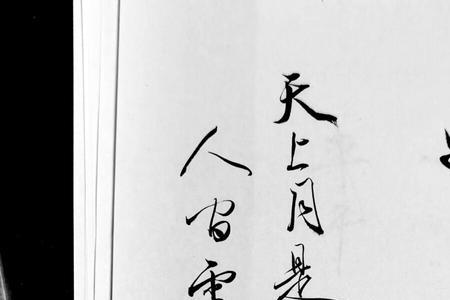 天上月是
人间